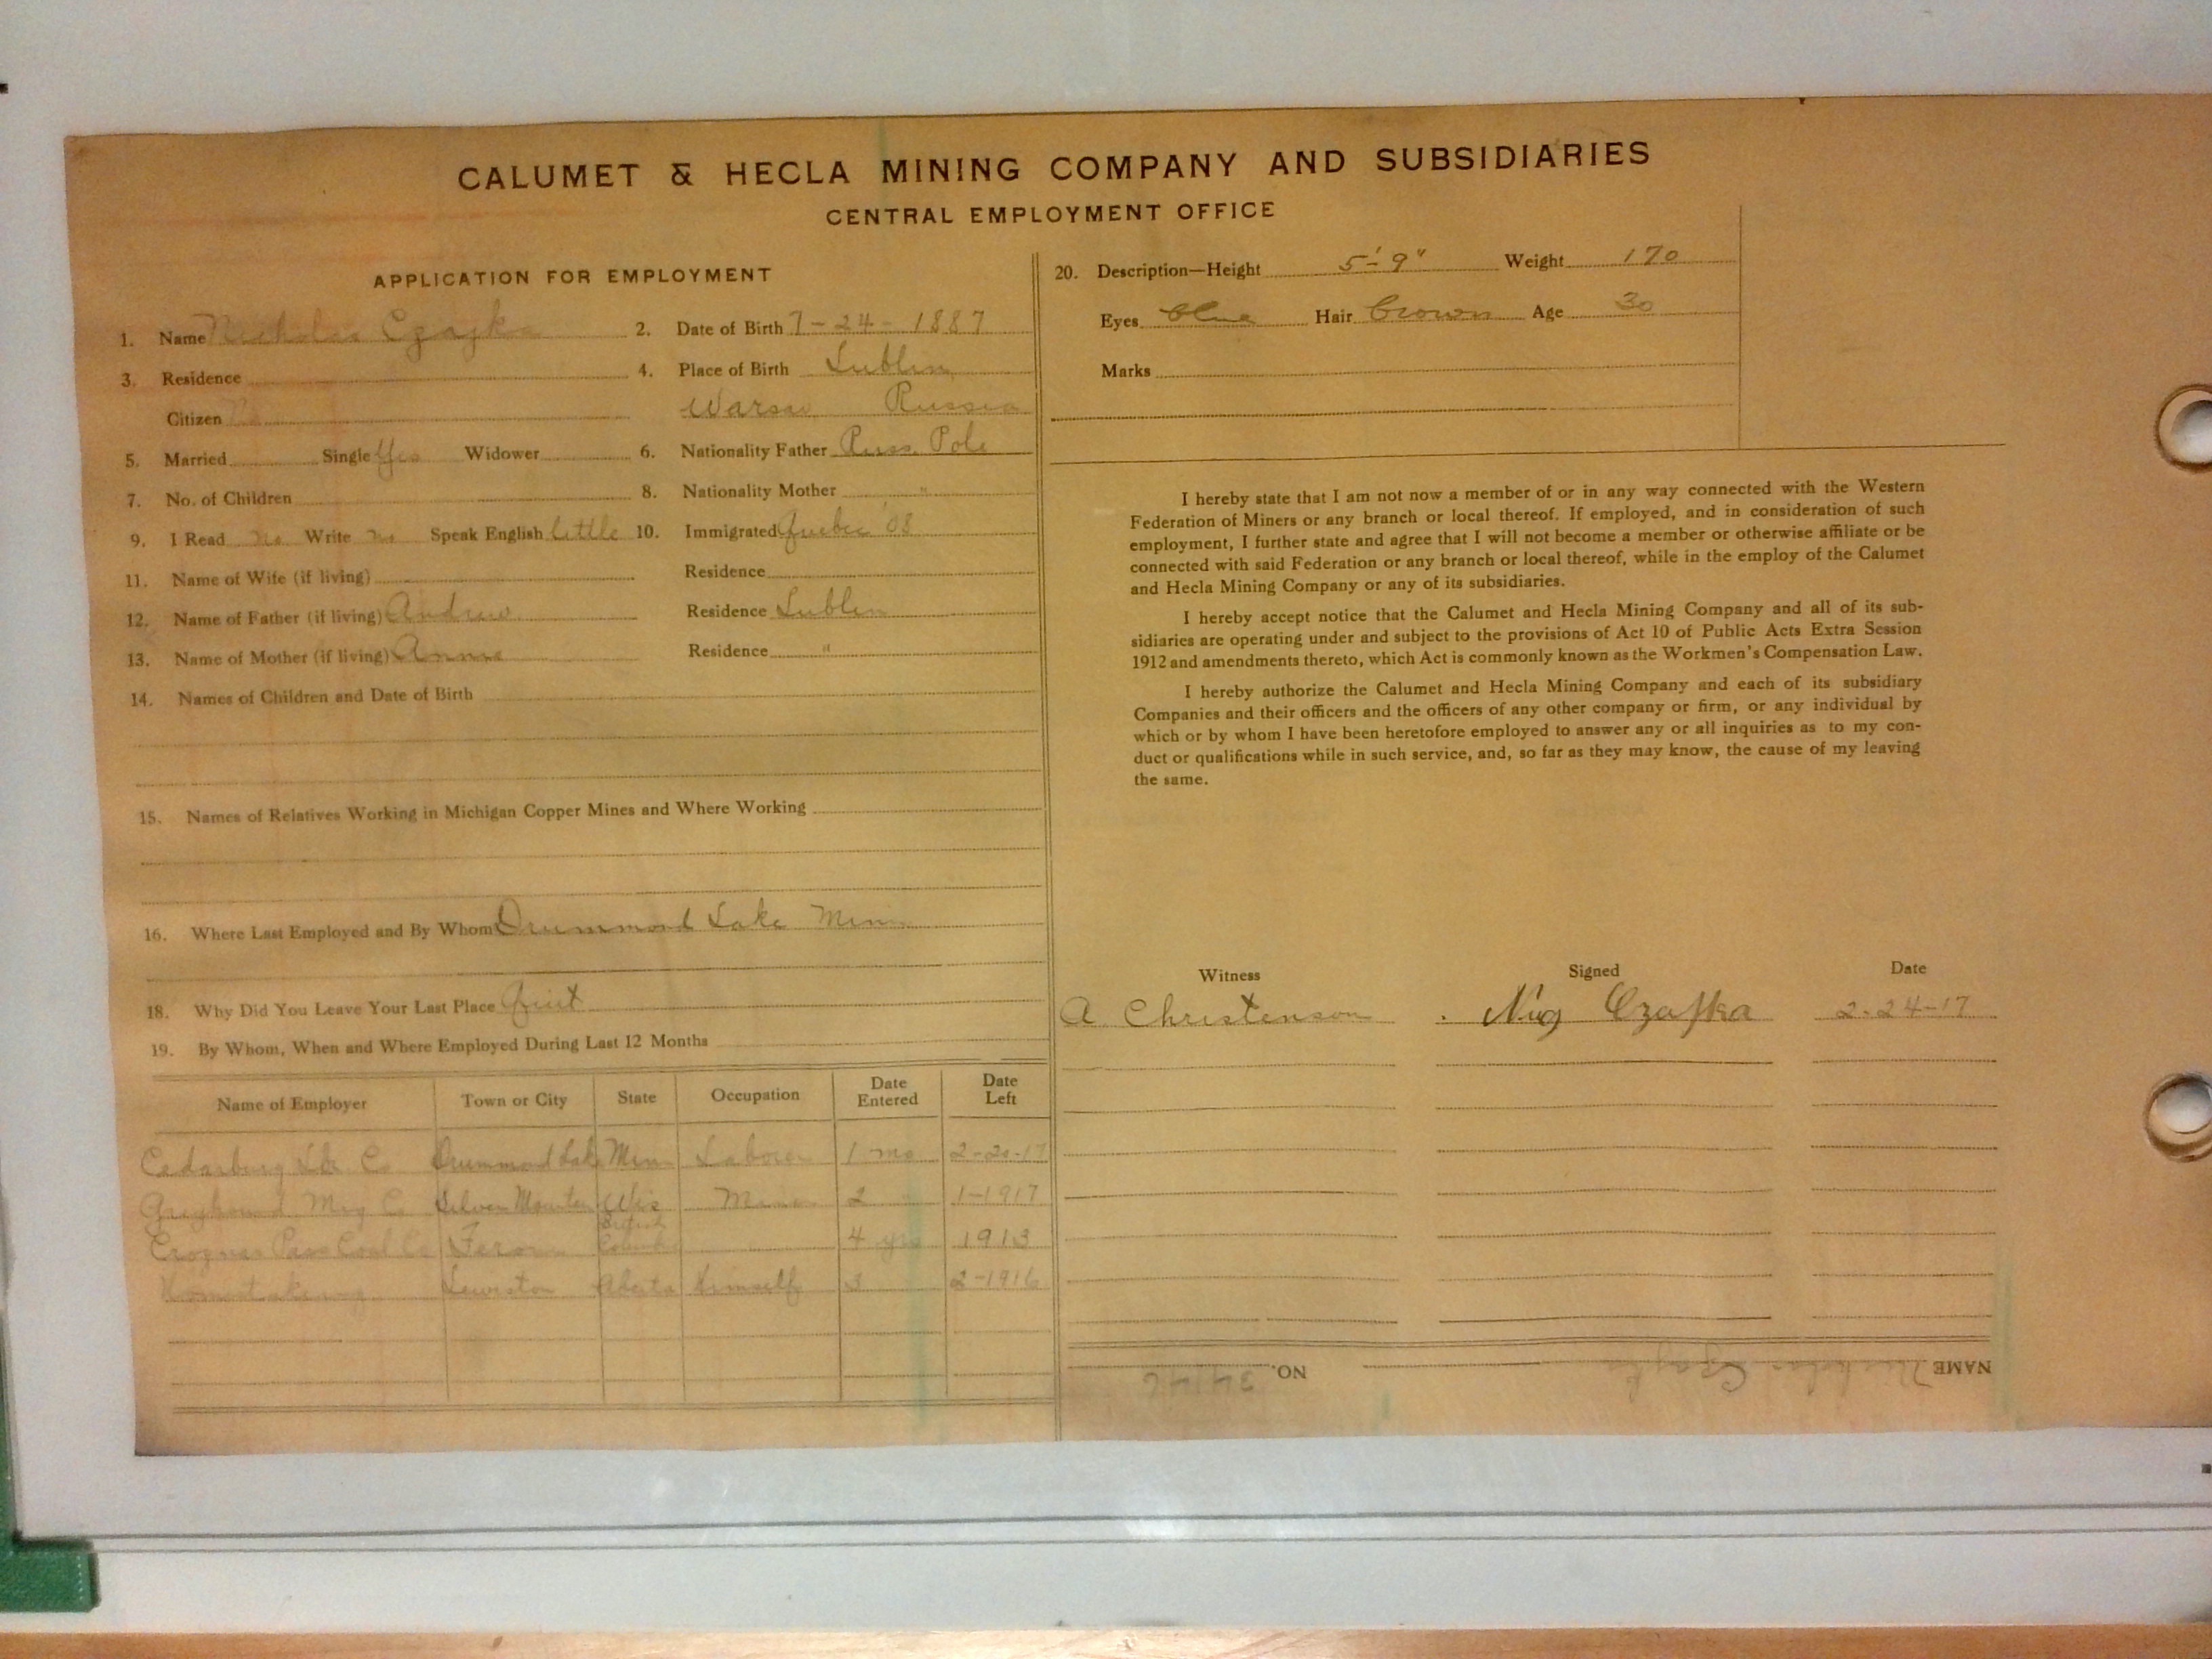 CALUMET & HECLA MINING COMPANY AND SUBSIDIARIES
CENTRAL EMPLOYMENT OFFICE
APPLICATION FOR EMPLOYMENT
1. Name Nicholas Czajka 2. Date of Birth 7-24-1887
3. Residence 4. Place of Birth Lublin
Citizen No Warsaw Russia
5. Married Single Yes Widower 6. Nationality Father Russ. Pole
7. No. of Children 8. Nationality Mother "
9. I Read no Write no Speak English little 10. Immigrated Quebec '08
11. Name of Wife (if living) Residence
12. Name of Father (if living) Andrew Residence Lublin
13. Name of Mother (if living) Annie Residence "
14. Names of Children and Date of Birth
15. Names of Relatives Working in Michigan Copper Mines and Where Working
16. Where Last Employed and By Whom Drummond Lake Minn
18. Why Did You Leave Your Last Place Quit
19. By Whom, When and Where Employed During Last 12 Months
Name of Employer Town or City State Occupation Date Entered Date Left
Cedarburg Co Drummond Lake Minn Laborer 1 mo 2-20-17
Greyhound Mng Co Silver Mountain Wis Miner 2 1-1917
Pass Coal Co British Columbia 4 yrs 1913
Lewiston Alberta Himself 3 2-1916
20. Description—Height 5'-9" Weight 170
Eyes blue Hair Brown Age 30
Marks
I hereby state that I am not now a member of or in any way connected with the Western
Federation of Miners or any branch or local thereof. If employed, and in consideration of such
employment, I further state and agree that I will not become a member or otherwise affiliate or be
connected with said Federation or any branch or local thereof, while in the employ of the Calumet
and Hecla Mining Company or any of its subsidiaries.
I hereby accept notice that the Calumet and Hecla Mining Company and all of its sub-
sidiaries are operating under and subject to the provisions of Act 10 of Public Acts Extra Session
1912 and amendments thereto, which Act is commonly known as the Workmen's Compensation Law.
I hereby authorize the Calumet and Hecla Mining Company and each of its subsidiary
Companies and their officers and the officers of any other company or firm, or any individual by
which or by whom I have been heretofore employed to answer any or all inquiries as to my con-
duct or qualifications while in such service, and, so far as they may know, the cause of my leaving
the same.
Witness Signed Date
A Christenson Czajka 2-24-17
NAME Nicholas Czajka NO. 34146